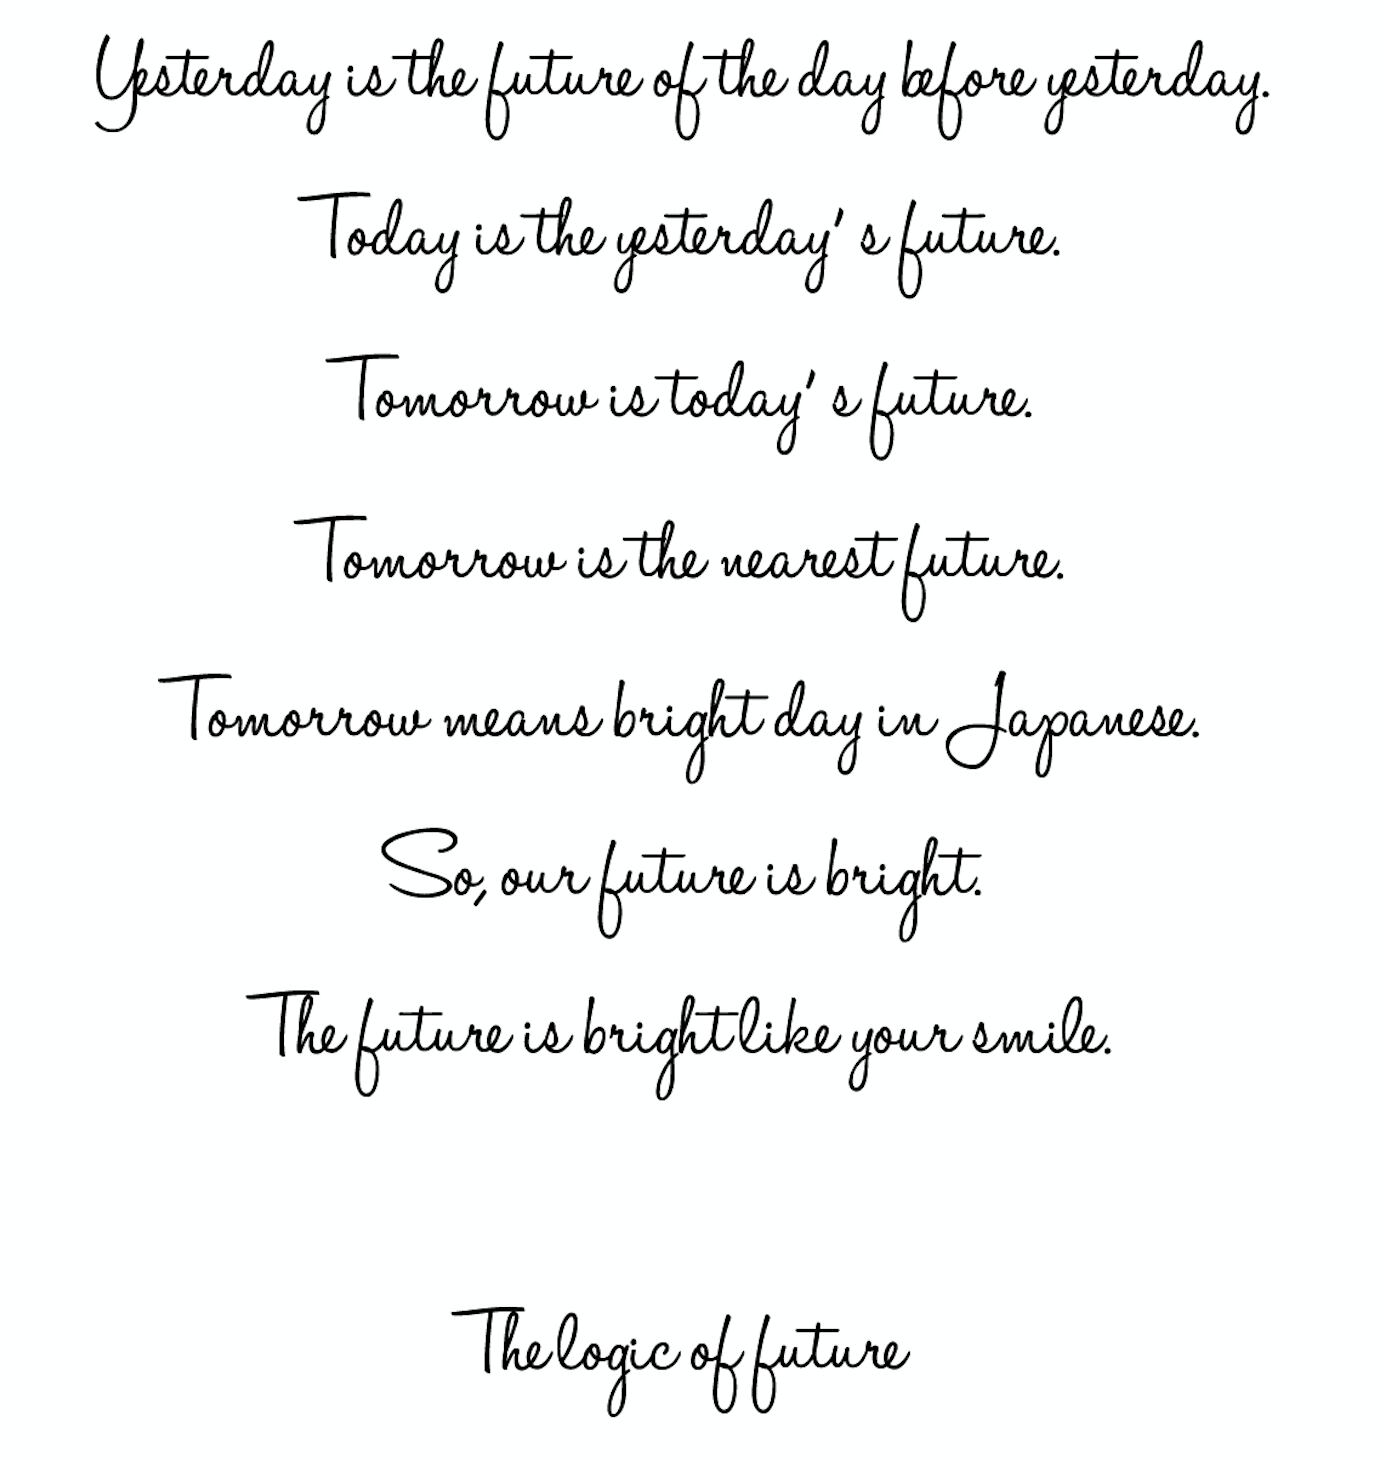 Yesterday is the future of the day before yesterday.
Today is the yesterday's future.
Tomorrow is today's future.
Tomorrow is the nearest future.
Tomorrow means bright day in Japanese.
So, our future is bright.
The future is bright like your smile.
The logic of future